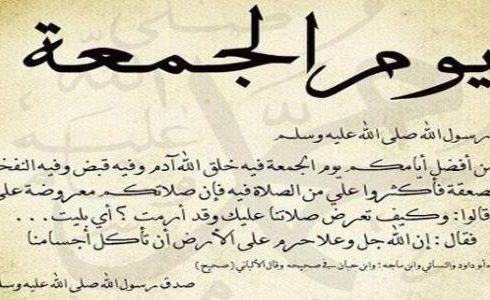 يوم الجمعة
رسول الله صلى الله عليه وسلم
من أفضل أيامكم يوم الجمعة فيه خلق الله آدم وفيه قبض وفيه النفخ
لصعقة فأكثروا علي من الصلاة فيه فإن صلاتكم معروضة علي
قالوا: وكيف تعرض صلاتنا عليك وقد أرمت ؟ أي بليت...
فقال: إن الله جل وعلا حرم على الأرض أن تأكل أجسامنا
أبو داود والنسائي وابن ماجه ؛ وابن حبان في صحيحه وقال الألباني (صحيح)
صدق رسول الله صلى الله عليه وسل